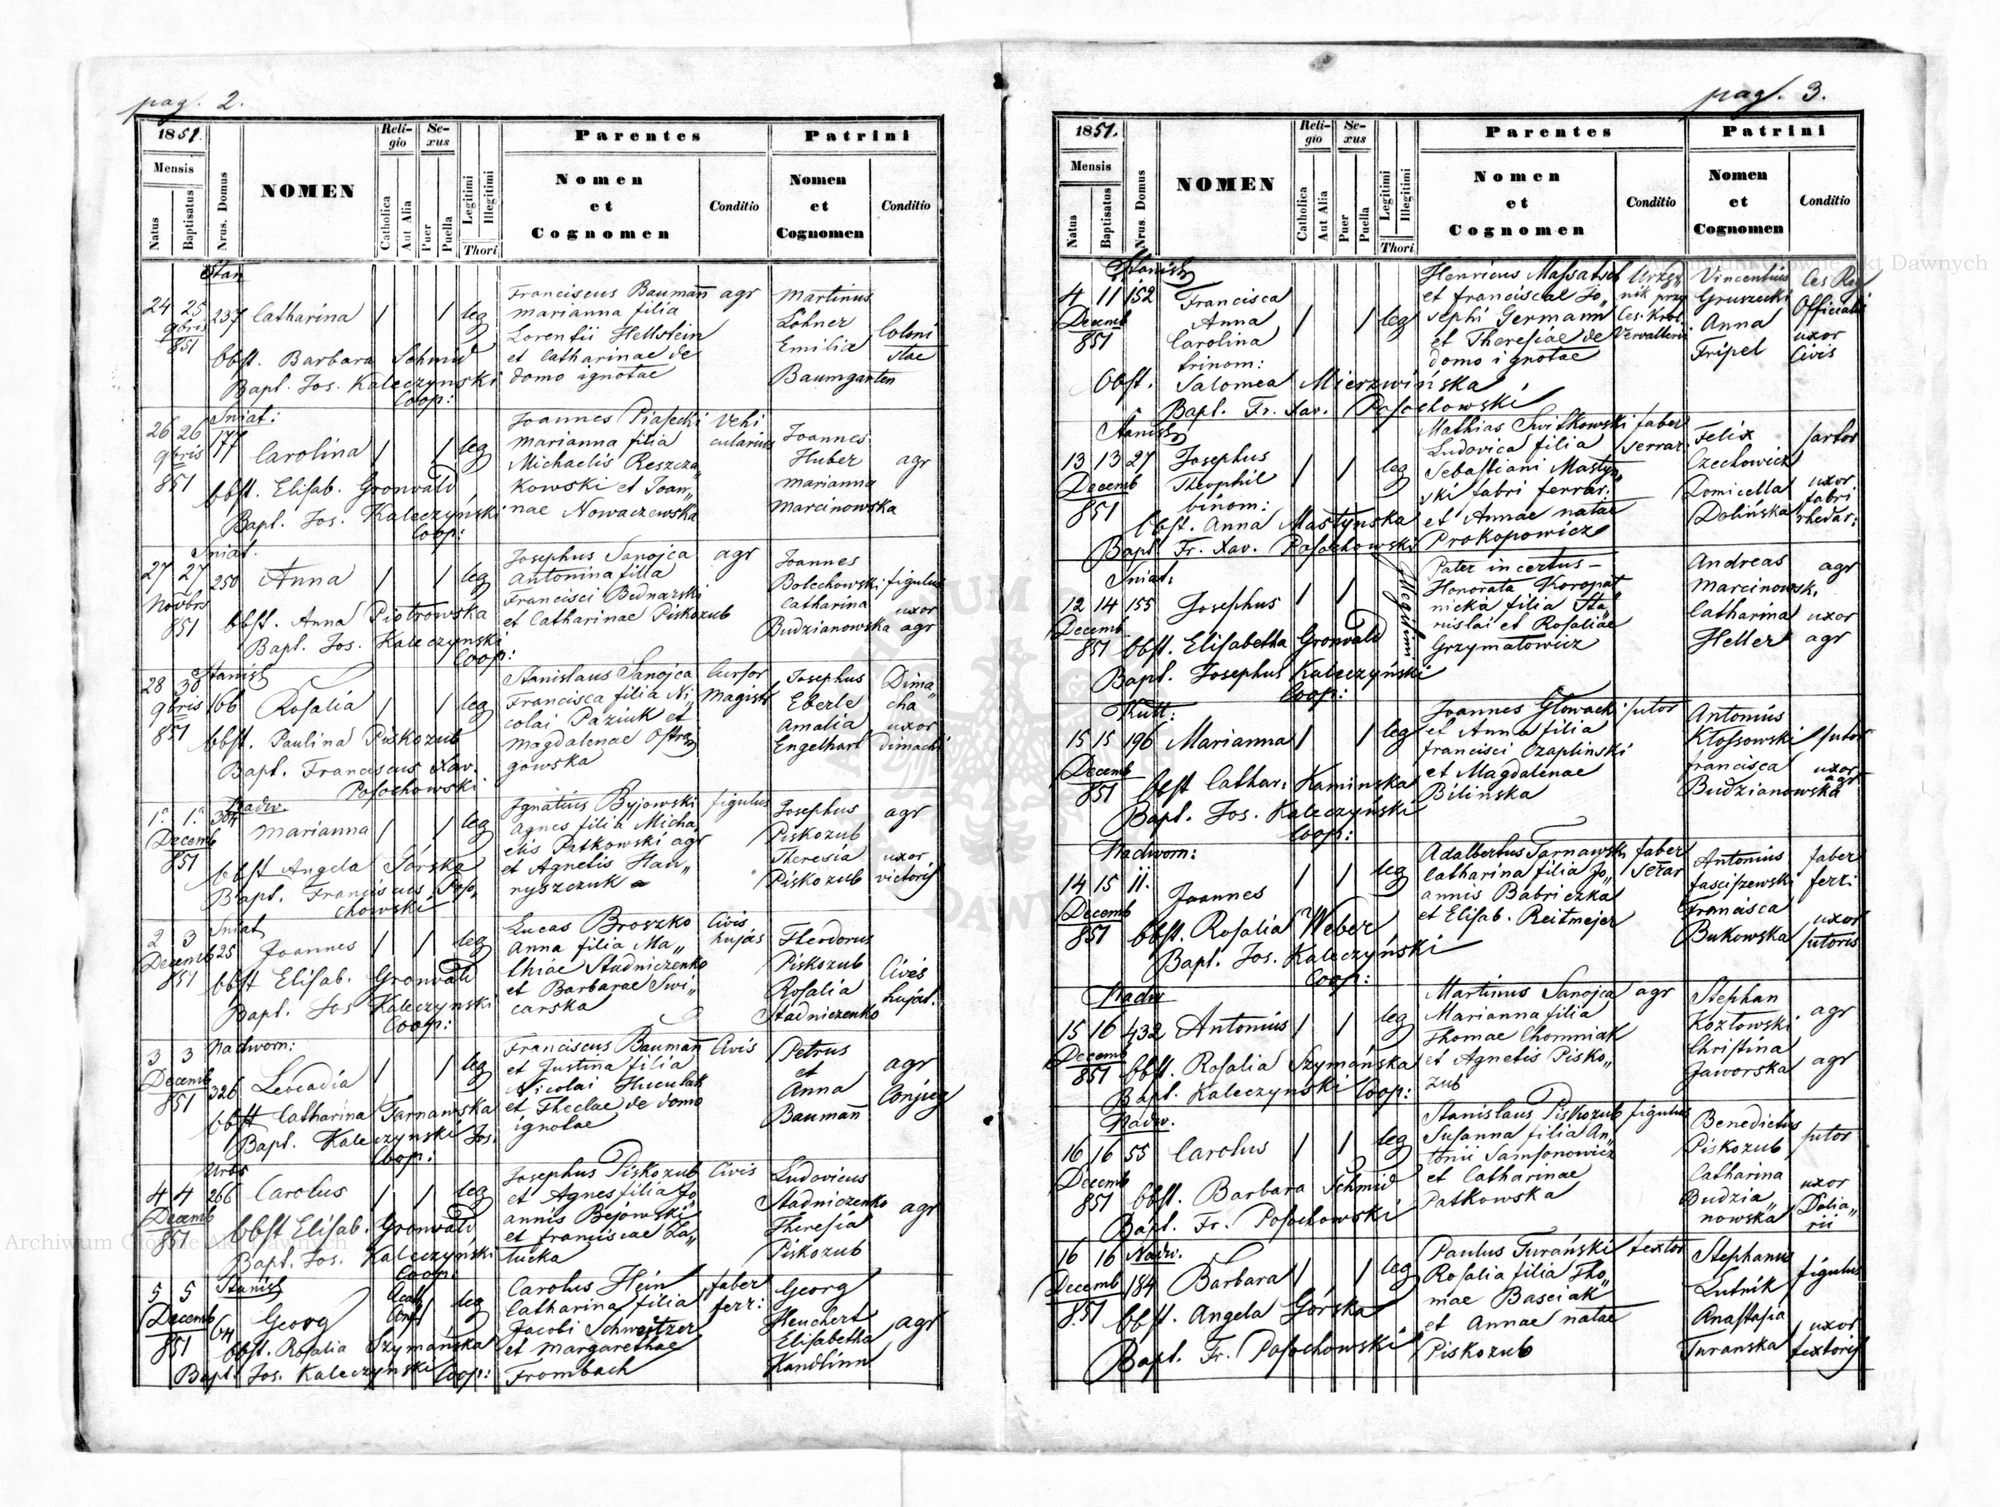 pag. 2.
1851.
Mensis
Natus
Baptisatus
Nrus. Domus
NOMEN
Religio
Catholica
Aut Alia
Sexus
Puer
Puella
Legitimi
Illegitimi
Thori
Parentes
Nomen
et
Cognomen
Conditio
Patrini
Nomen
et
Cognomen
Conditio
Stan
24 25 237 Catharina 1 1 leg
9bris
851
Obst. Barbara Schmid
Bapt. Jos. Kaleczynski
Coop:
Franciscus Baumañ agr
Marianna filia
Lorentii Hellstein
et Catharinae de
domo ignotae
Martinus
Löhner
Emilia
Baumgarten
Coloni
stae
Sniat:
26 26 177 Carolina 1 1 leg
9bris
851
Obst. Elisab. Gronwald
Bapt. Jos. Kaleczyński
Coop:
Joannes Piasecki
Marianna filia
Michaelis Reszcza„
kowski et Joan„
nae Nowaczewska
Vehi
cularius
Joannes
Huber agr
Marianna
Marcinowska
Sniat.
27 27 250 Anna 1 1 leg
Novbr
851
Obst. Anna Piotrowska
Bapt. Jos. Kaleczynski
Coop:
Josephus Sanojca agr
Antonina filia
Francisci Bednarski
et Catharinae Piskozub
Joannes
Bolechowski figulus
Catharina uxor
Budzianowska agr
Stanisl
28 30 166 Rosalia 1 1 leg
9bris
851
Obst. Paulina Piskozub
Bapt. Franciscus Xav.
Posochowski
Stanislaus Sanojca
Francisca filia Ni„
colai Paziuk et
Magdalenae Ostro„
gowska
Cursor
Magistr
Josephus
Eberle
Amalia
Engelhart
Dima„
cha
uxor
dimachi
Nadw.
1. 1. 304 Marianna 1 1 leg
Decemb
851
Obst Angela Górska
Bapt. Franciscus Poso„
chowski
Ignatius Byjowski figulus
Agnes filia Micha„
elis Patkowski agr
et Agnetis Haw„
ryszczuk
Josephus agr
Piskozub
Theresia uxor
Piskozub victoris
Sniat
2 3 25 Joannes 1 1 leg
Decemb
851
Obst Elisab. Gronwald
Bapt. Jos Kaleczynski
Coop:
Lucas Broszko
Anna filia Ma„
thiae Stadniczenko
et Barbarae Swi„
carska
Civis
hujas
Theodorus
Piskozub
Rosalia
Stadniczenko
Cives
hujat.
Nadworn:
3 3 326 Leocadia 1 1 leg
Decemb
851
Obst Catharina Tarnawska
Bapt. Kaleczynski Jos.
Coop:
Franciscus Baumañ Civis
et Justina filia
Nicolai Huculak
et Theclae de domo
ignotae
Petrus
et
Anna
Baumañ
agr
Conjug
4 4 266 Carolus 1 1 leg
Decemb
851
Obst Elisab. Gronwald
Bapt. Jos. Kaleczynski
Coop:
Josephus Piskozub Civis
et Agnes filia Jo„
annis Bejowski
et Franciscae La„
tucka
Ludovicus
Stadniczenko agr
Theresia
Piskozub
Stanisl
5 5 64 Georg leg
Decemb
851
Obst. Rosalia Szymańska
Bapt. Jos. Kaleczynski Coop:
Carolus Hein faber
Catharina filia ferr:
Jacobi Schweitzer
et Margarethae
Frombach
Georg
Heuchert agr
Elisabetha
Kandlinn
pag. 3.
1851.
Mensis
Natus
Baptisatus
Nrus. Domus
NOMEN
Religio
Catholica
Aut Alia
Sexus
Puer
Puella
Legitimi
Illegitimi
Thori
Parentes
Nomen
et
Cognomen
Conditio
Patrini
Nomen
et
Cognomen
Conditio
Stanisl
4 11 152 Francisca 1 1 leg
Decemb Anna
851 Carolina
trinom:
Obst. Salomea Mierzwińska
Bapt. Fr. Xav. Posochowski
et Franciscae Jo„
sephi Germann
et Theresiae de
domo ignotae
Vincentius
Gruszecki
Anna
Fripel
Ces Reg
Officialis
uxor
Civis
Stanisl
13 13 27 Josephus 1 1 leg
Decemb Theophil
851 binom:
Obst. Anna Mastynska
Bapt Fr. Xav. Posochowski
Mathias Switkowski faber
Ludovica filia ferrar.
Sebastiani Mastyn„
ski fabri ferrar.
et Annae natae
Prokopowicz
Felix sartor
Czechowicz
Domicella uxor
Dolińska fabri
rhedar:
Sniat:
12 14 155 Josephus 1 1 Illegitim
Decemb.
851
Obst. Elisabetha Gronvald
Bapt. Josephus Kaleczyński
Coop:
Pater incertus –
Honorata Koropat
nicka filia Sta„
nislai et Rosaliae
Grzymatowicz
Andreas agr
Marcinowsk.
Catharina uxor
Heller agr
Kutt:
15 15 196 Marianna 1 1 leg
Decemb
851
Obst Cathar: Kaminska
Bapt. Jos. Kaleczyński
Coop:
Joannes Głowacki sutor
et Anna filia
Francisci Czaplinski
et Magdalenae
Bilinska
Antonius
Kłossowski sutor
Francisca uxor
Budzianowska agr
Nadworn:
14 15 11. Joannes 1 1 leg
Decemb
851
Obst. Rosalia Weber
Bapt. Jos. Kaleczyński
Coop:
Adalbertus Tarnawski faber
Catharina filia Jo„ serar
annis Babriczka
et Elisab. Reitmejer
Antonius faber
Jasciszewski ferri
Francisca uxor
Bukowska sutoris
Nadw
15 16 432 Antonius 1 1 leg
Decemb
851
Obst. Rosalia Szymańska
Bapt. Kaleczynski Coop:
Martinus Sanojca agr
Marianna filia
Thomae Chomniak
et Agnetis Pisko„
zub
Stephan
Kozłowski agr
Christina
Jaworska agr
Nadw.
16 16 55 Carolus 1 1 leg
Decemb
851
Obst. Barbara Schmid
Bapt. Fr. Posochowski
Stanislaus Piskozub figulus
Susanna filia An„
tonii Samsonowicz
et Catharinae
Patkowska
Benedictus
Piskozub sutor
Catharina uxor
Budzia„ Dolia„
nowska rii
16 16 Nadw.
Decemb 184 Barbara 1 1 leg
851
Obst. Angela Górska
Bapt. Fr. Posochowski
Paulus Turański textor
Rosalia filia Tho„
mae Basciak
et Annae natae
Piskozub
Stephanus
Lutnik figulus
Anastasia uxor
Turanska textoris
Archiwum Główne Akt Dawnych